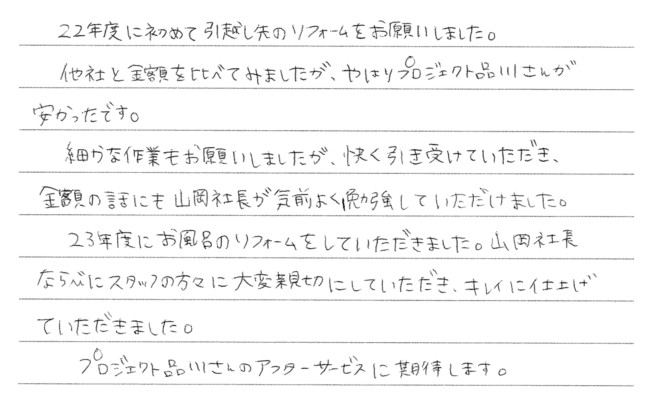 22年度に初めて引越し先のリフォームをお願いしました。
他社と金額を比べてみましたが、やはりプロジェクト品川さんが
安かったです。
細かな作業もお願いしましたが、快く引き受けていただき、
金額の話にも山岡社長が気前よく勉強していただけました。
23年度にお風呂のリフォームをしていただきました。山岡社長
ならびにスタッフの方々に大変親切にしていただき、キレイに仕上げ
ていただきました。
プロジェクト品川さんのアフターサービスに期待します。